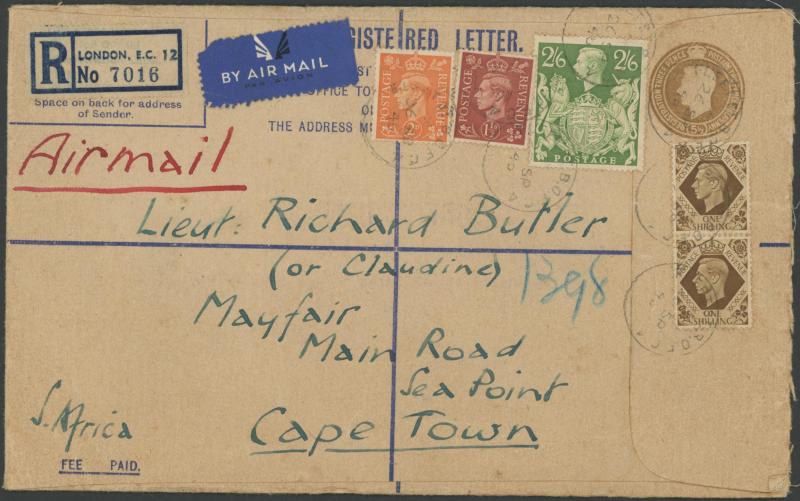 R LONDON, E.C. 12
No 7016
Space on back for address
of Sender.
BY AIR MAIL
PAR AVION
REGISTERED LETTER.
THE ADDRESS M
POSTAGE REVENUE
2D
POSTAGE REVENUE
1½D
2/6 2/6
POSTAGE
POSTAGE REVENUE
ONE SHILLING
POSTAGE REVENUE
ONE SHILLING
Airmail
Lieut. Richard Butler
(or Claudine)
1398
Mayfair
Main Road
Sea Point
Cape Town
S. Africa
FEE PAID.